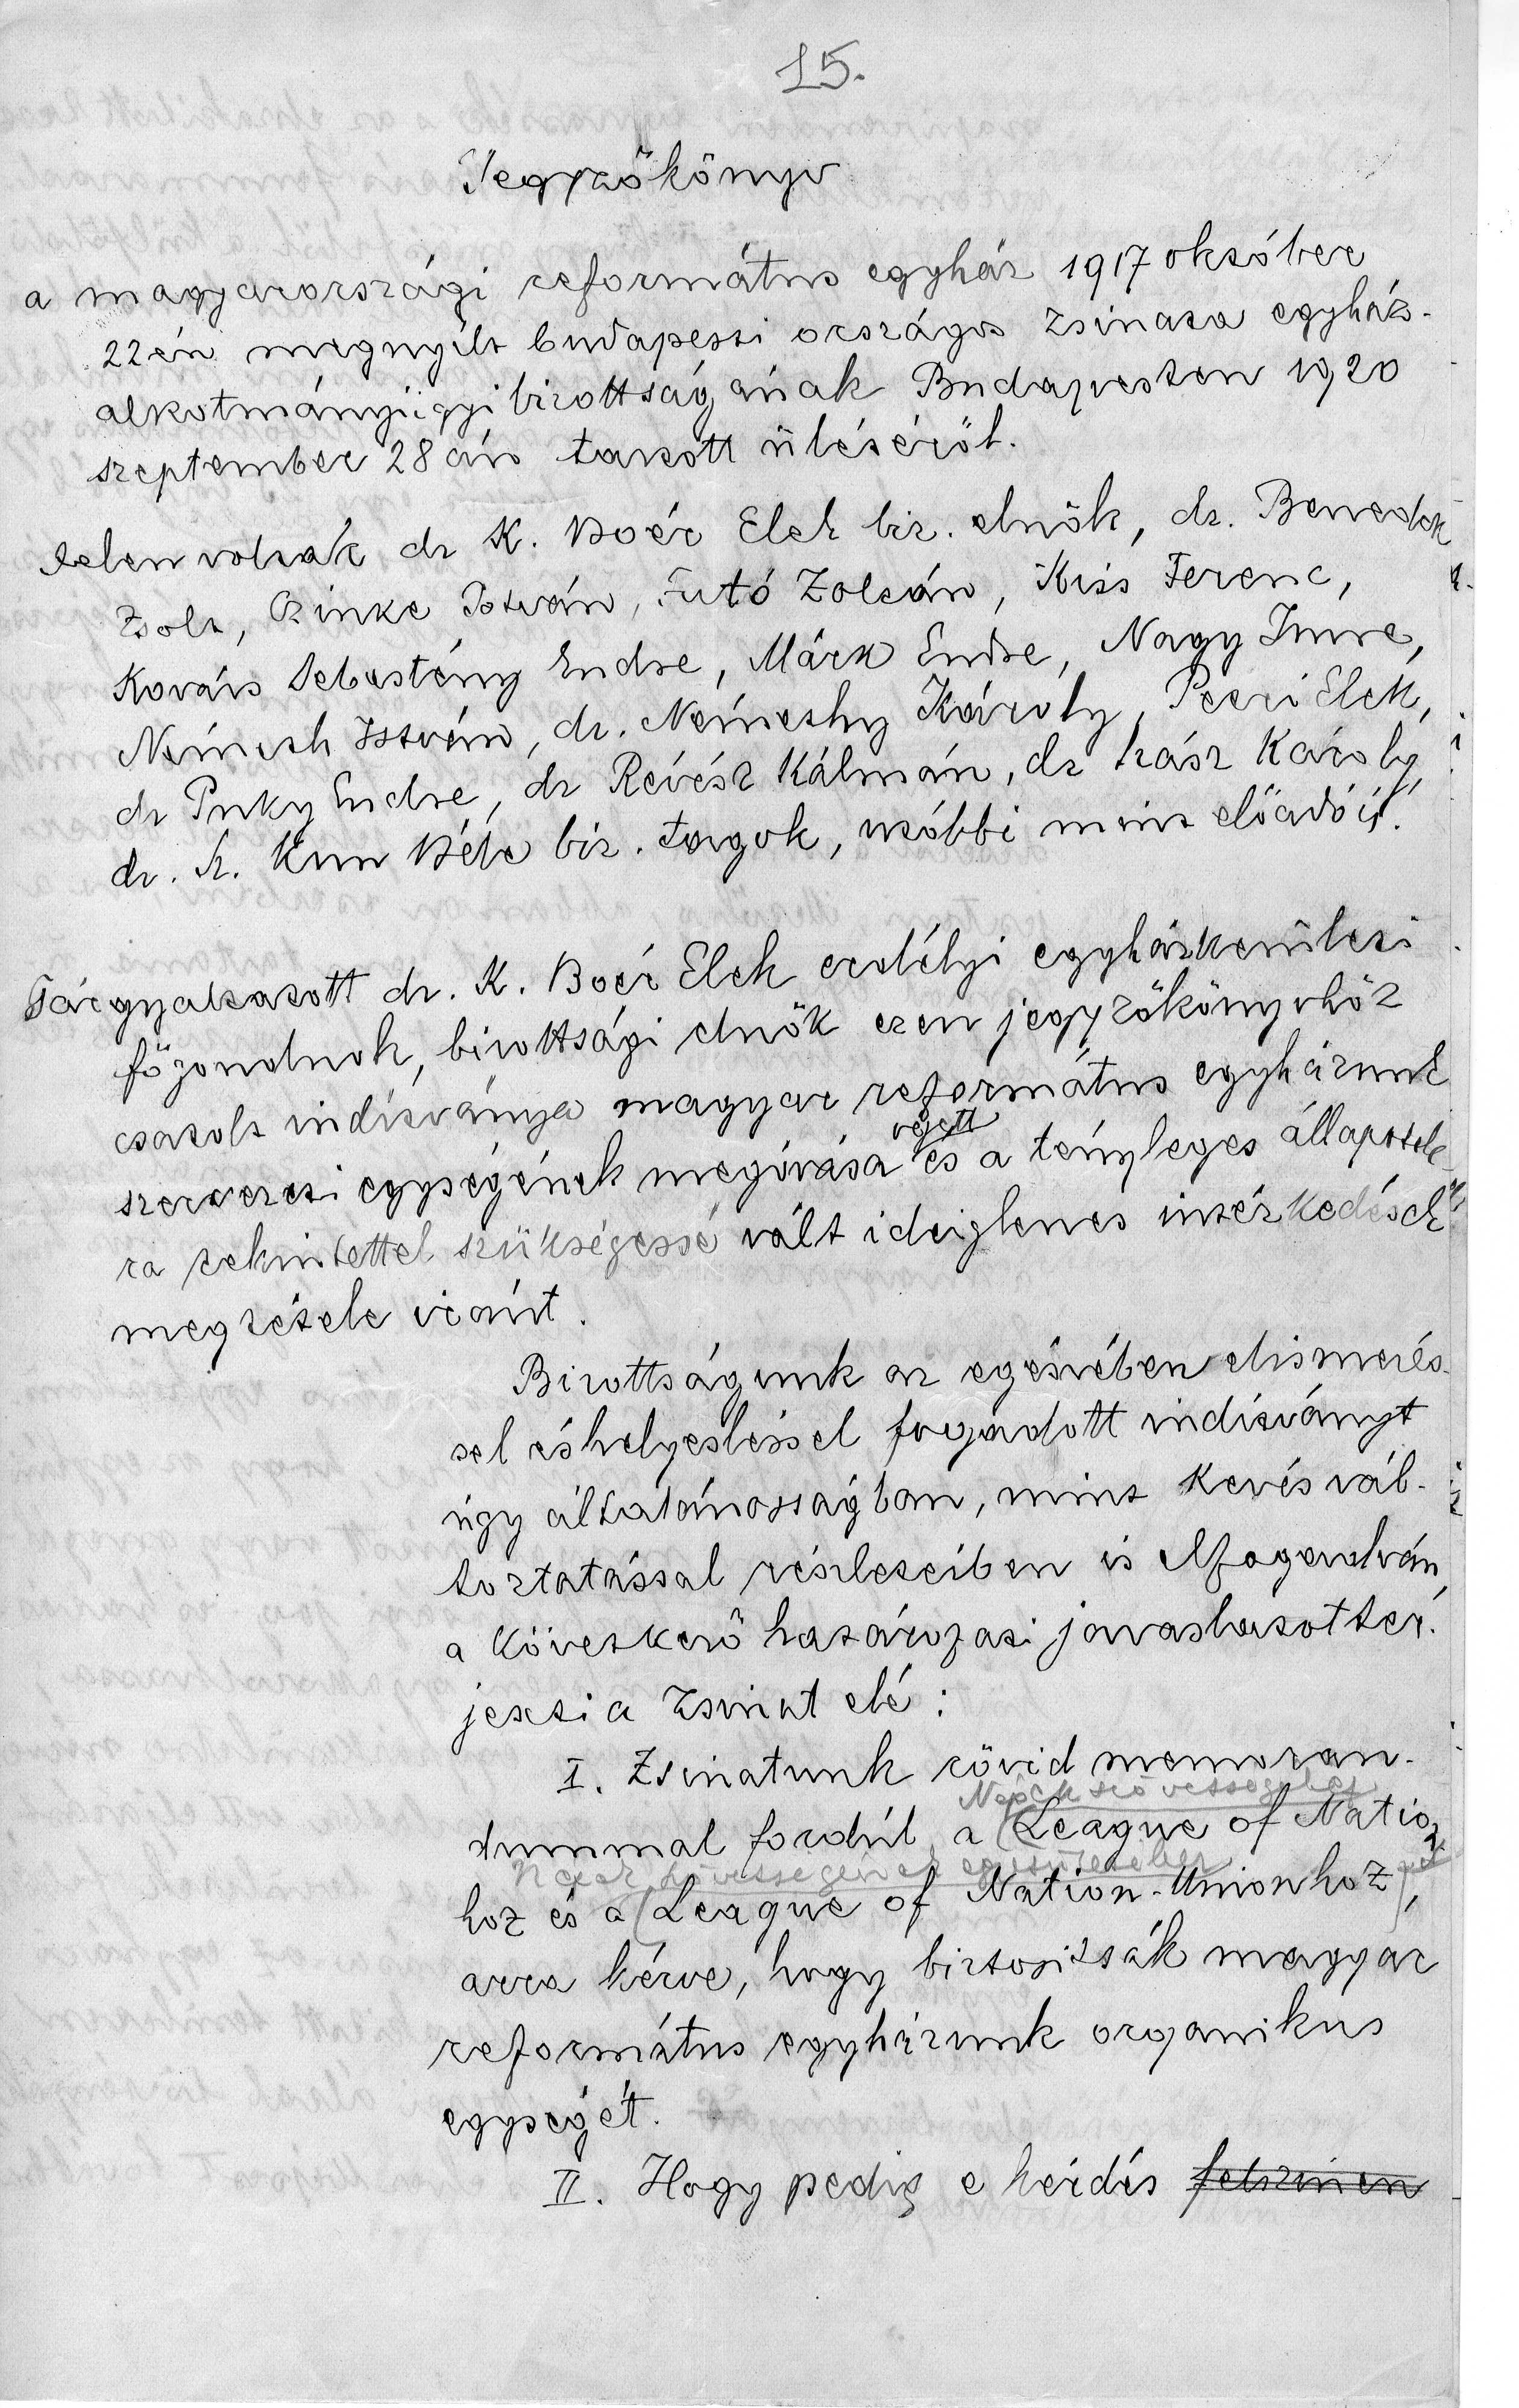 15.
Jegyzőkönyv
a magyarországi református egyház 1917 október
22én megnyílt budapesti országos zsinata egyház-
alkotmányügyi bizottságának Budapesten 1920
szeptember 28án tartott üléséről.
Jelen voltak dr K. Boér Elek biz. elnök, dr. Benedek
Zsolt, Czinke István, Futó Zoltán, Kiss Ferenc,
Kovács Sebestény Endre, Márk Endre, Nagy Imre,
Németh István, dr. Németh Károly, Péri Elek,
dr Puky Endre, dr Révész Kálmán, dr Szász Károly,
dr. Sz. Kun Béla biz. tagok, utóbbi mint előadó is.
Tárgyaltatott dr. K. Boér Elek erdélyi egyházkerületi
főgondnok, bizottsági elnök ezen jegyzőkönyvhöz
csatolt indítványa magyar református egyházunk
szervezeti egységének megóvása végett és a tényleges állapotok-
ra tekintettel szükségessé vált ideiglenes intézkedések
megtétele iránt.
Bizottságunk az egészében elismerés-
sel és helyesléssel fogadott indítványt
úgy általánosságban, mint kevés vál-
toztatással részleteiben is elfogadván,
a következő határozati javaslatot ter-
jeszti a zsinat elé:
I. Zsinatunk rövid memoran-
Népek szövetségéhez
dummal fordúl a (League of Nation
Népek szövetségének egyesületéhez
hoz és a (League of Nation-Unionhoz),
arra kérve, hogy biztosítsák magyar
református egyházunk organikus
egységét.
II. Hogy pedig e kérdés felszinen